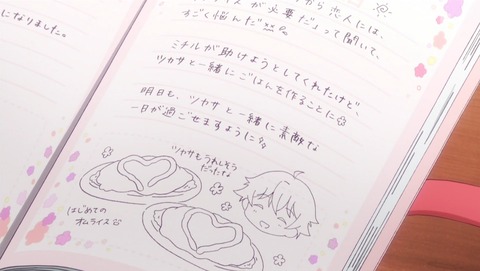 になりました。
から恋人には、
が必要だ」って聞いて、
すごく悩んだ
ミチルが助けようとしてくれたけど、
ツカサと一緒にごはんを作ることに
明日も、ツカサと一緒に素敵な
一日が過ごせますように
ツカサもうれしそう
だったな
はじめての
オムライス